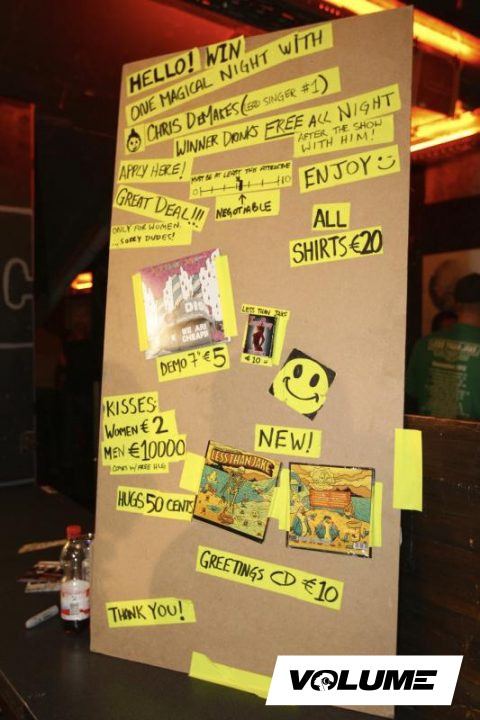 HELLO! WIN
ONE MAGICAL NIGHT WITH
CHRIS DEMAKES (LEAD SINGER #1)
WINNER DRINKS FREE ALL NIGHT
AFTER THE SHOW
WITH HIM!
APPLY HERE!
MUST BE AT LEAST THIS ATTRACTIVE
NEGOTIABLE
ENJOY
GREAT DEAL!!!
ONLY FOR WOMEN
...SORRY DUDES!
ALL
SHIRTS €20
WE ARE
CHEAP!!
DEMO 7" €5
LESS THAN JAKE
€10
KISSES:
WOMEN €2
MEN €10000
COMES W/ FREE HUG
HUGS 50 CENTS
NEW!
LESS THAN JAKE
GREETINGS CD €10
THANK YOU!
VOLUME